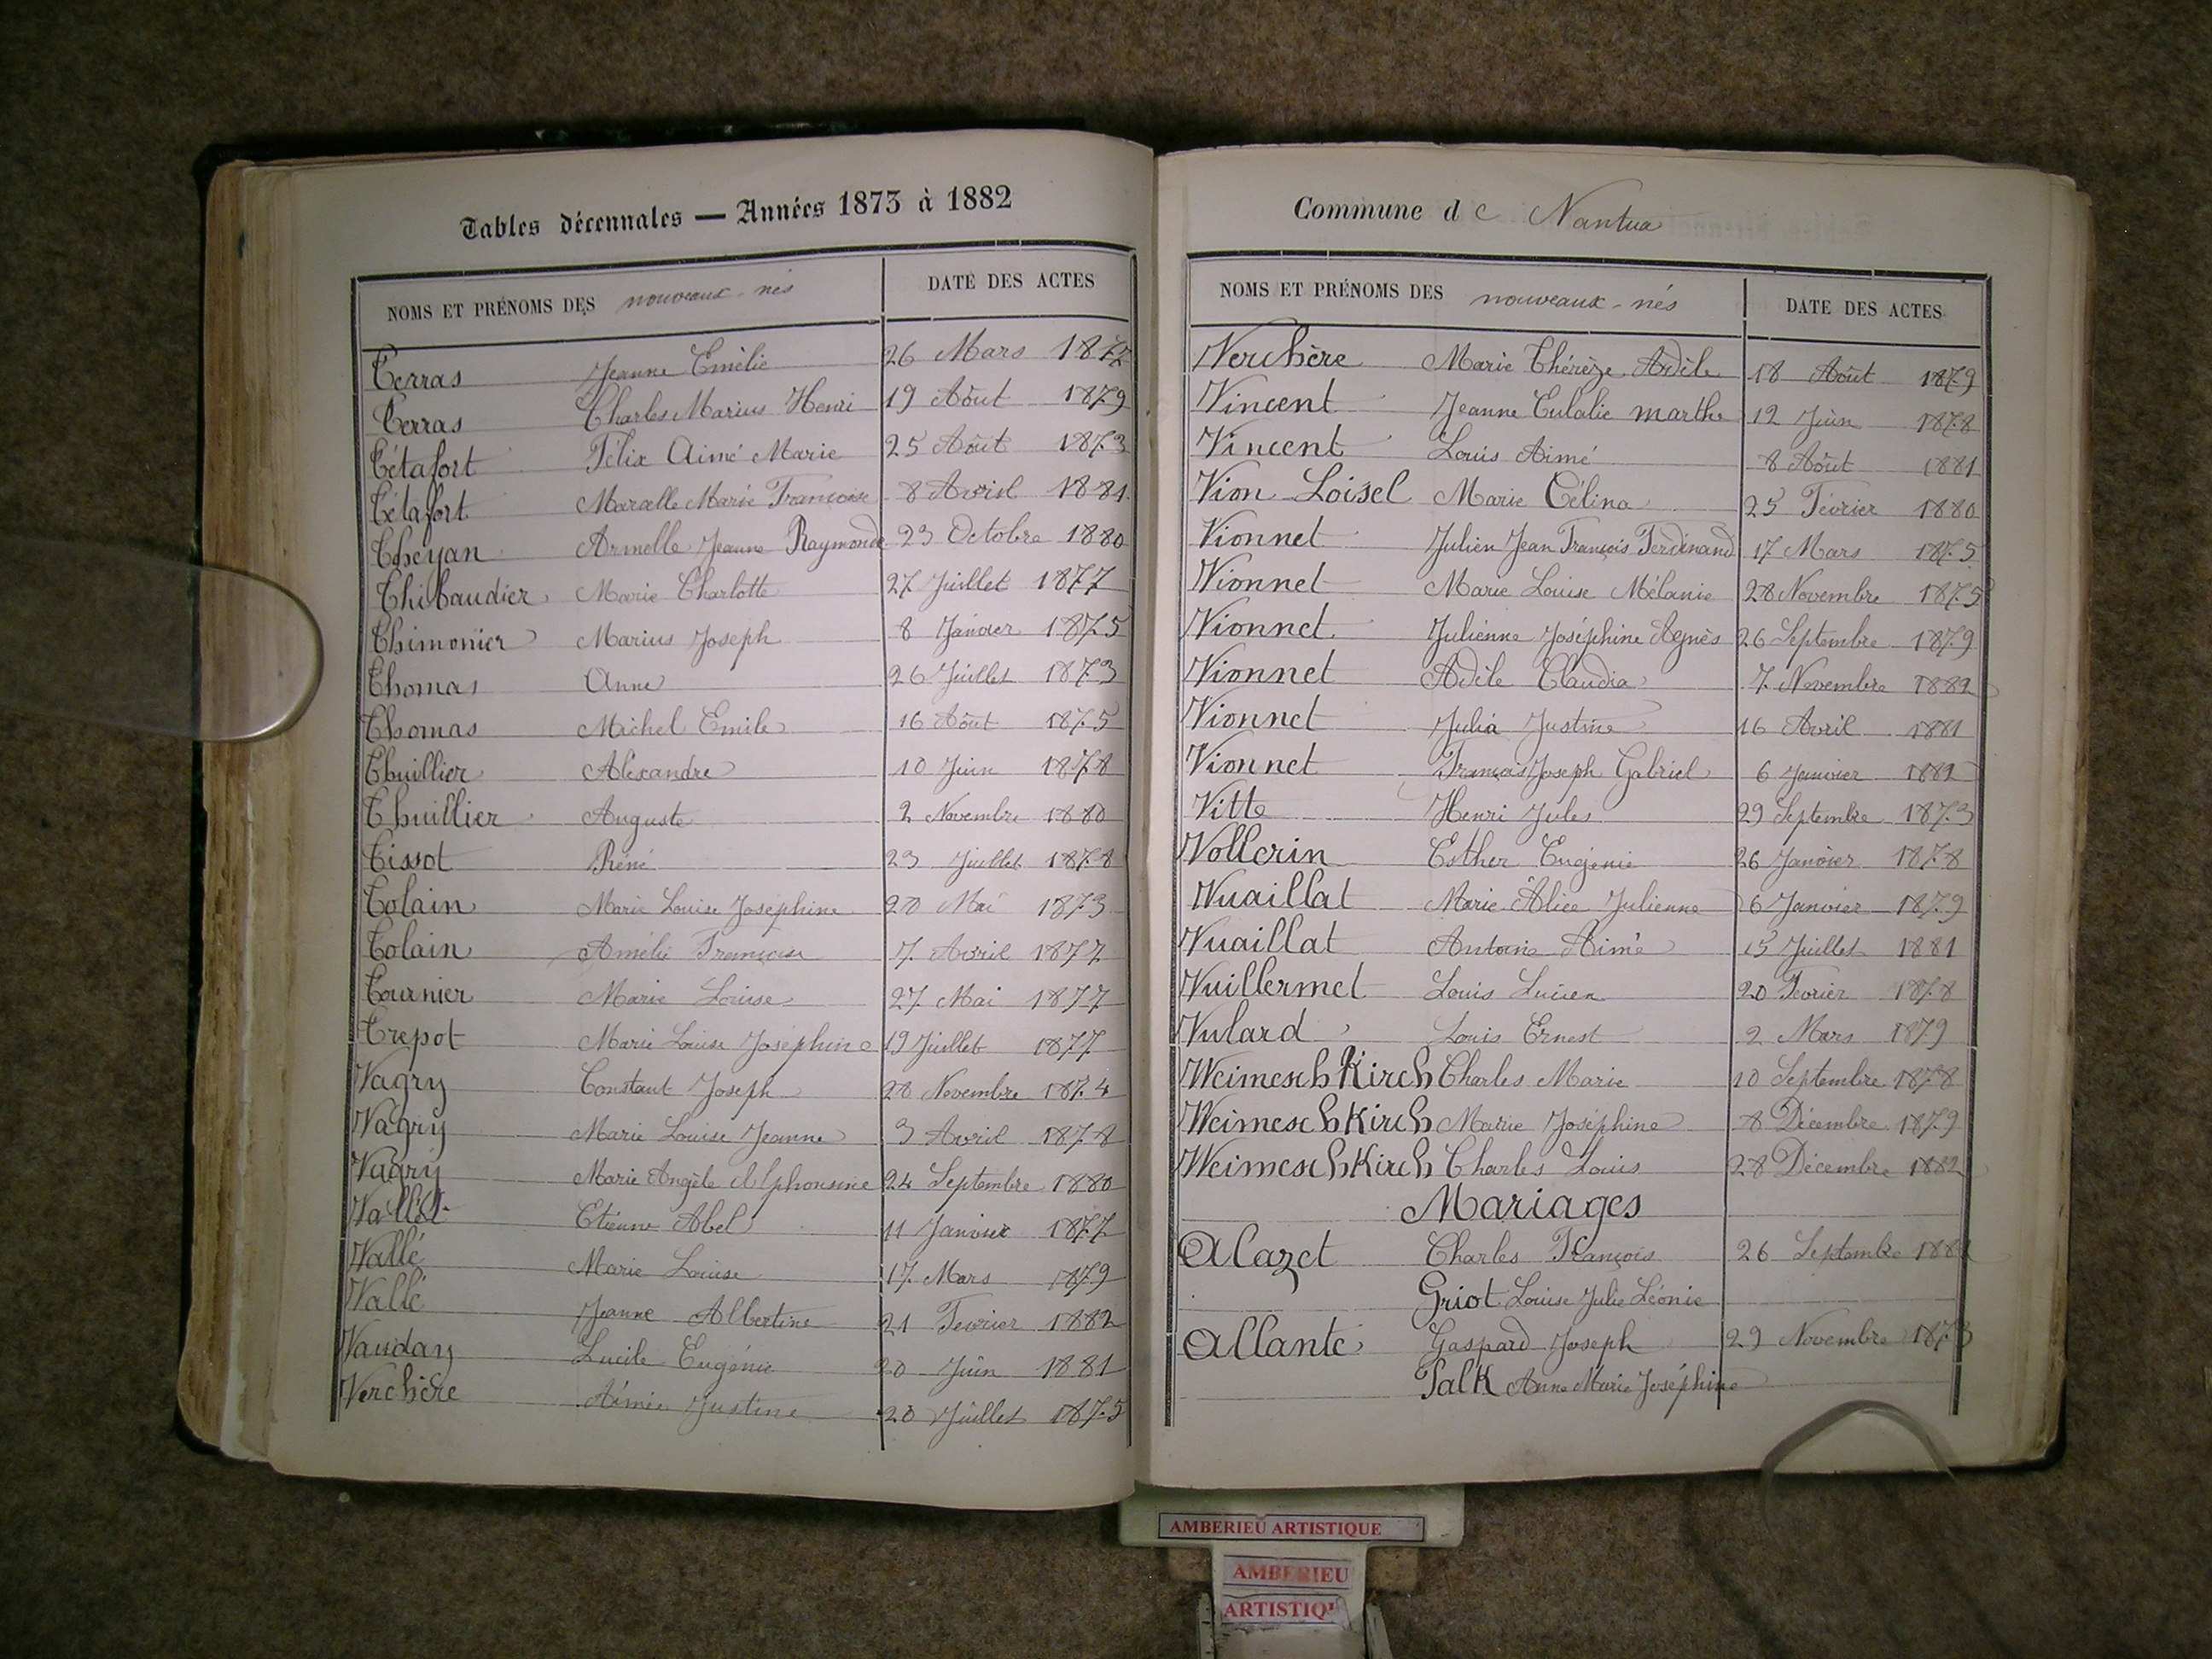 Tables décennales — Années 1873 à 1882
NOMS ET PRÉNOMS DES nouveaux-nés DATE DES ACTES
Terras Jeanne Emélie 26 Mars 1877
Terras Charles Marius Henri 19 Août 1879
Tétafort Félix Aimé Marie 25 Août 1873
Tétafort Marcelle Marie Françoise 8 Avril 1881
Theyan Armelle Jeanne Raymonde 23 Octobre 1880
Thibaudier Marie Charlotte 27 Juillet 1877
Thimonier Marius Joseph 8 Janvier 1875
Thomas Anne 26 Juillet 1873
Thomas Michel Emile 16 Août 1875
Thuillier Alexandre 10 Juin 1878
Thuillier Auguste 2 Novembre 1880
Tissot Réné 23 Juillet 1878
Tolain Marie Louise Joséphine 20 Mai 1873
Tolain Amélie Françoise 7 Avril 1877
Tournier Marie Louise 27 Mai 1877
Trepot Marie Louise Joséphine 19 Juillet 1877
Vagry Constant Joseph 28 Novembre 1874
Vagry Marie Louise Jeanne 3 Avril 1878
Vagry Marie Angèle Alphonsine 24 Septembre 1880
Etienne Abel 11 Janvier 1877
Vallé Marie Louise 17 Mars 1879
Vallé Jeanne Albertine 21 Fevrier 1882
Vauday Lucile Eugénie 20 Juin 1881
Verchère Aimée Justine 20 Juillet 1875
Commune de Nantua
NOMS ET PRÉNOMS DES nouveaux-nés DATE DES ACTES
Verchère Marie Thérèze Adèle 18 Août 1879
Vincent Jeanne Eulalie marthe 12 Juin 1878
Vincent Louis Aimé 8 Août 1881
Vion Loisel Marie Célina 25 Février 1880
Vionnet Julien Jean François Ferdinand 17 Mars 1875
Vionnet Marie Louise Mélanie 28 Novembre 1875
Vionnet Julienne Joséphine Agnès 26 Septembre 1879
Vionnet Adèle Claudia 7 Novembre 1882
Vionnet Julia Justine 16 Avril 1881
Vionnet François Joseph Gabriel 6 Janvier 1882
Vitte Henri Jules 29 Septembre 1873
Vollerin Esther Eugénie 26 Janvier 1878
Vuaillat Marie Alice Julienne 6 Janvier 1879
Vuaillat Antoine Aimé 15 Juillet 1881
Vuillermet Louis Lucien 20 Fevrier 1878
Vulard Louis Ernest 2 Mars 1879
WeimeschKirch Charles Marie 10 Septembre 1878
WeimeschKirch Marie Joséphine 8 Décembre 1879
WeimeschKirch Charles Louis 28 Décembre 1882
Mariages
Alazet Charles François 26 Septembre
Griot Louise Julie Léonie
Allante Gaspard Joseph 29 Novembre 1873
Falk Anne Marie Joséphine
AMBERIEU ARTISTIQUE
AMBERIEU
ARTISTIQU